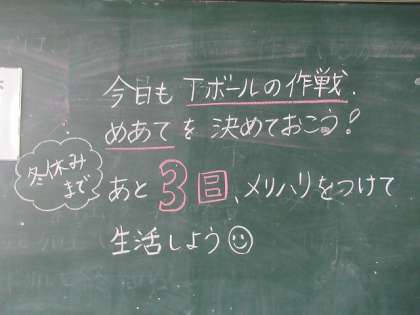 今日も Tボールの作戦、
めあてを決めておこう!
冬休み
まで
あと3日、メリハリをつけて
生活しよう